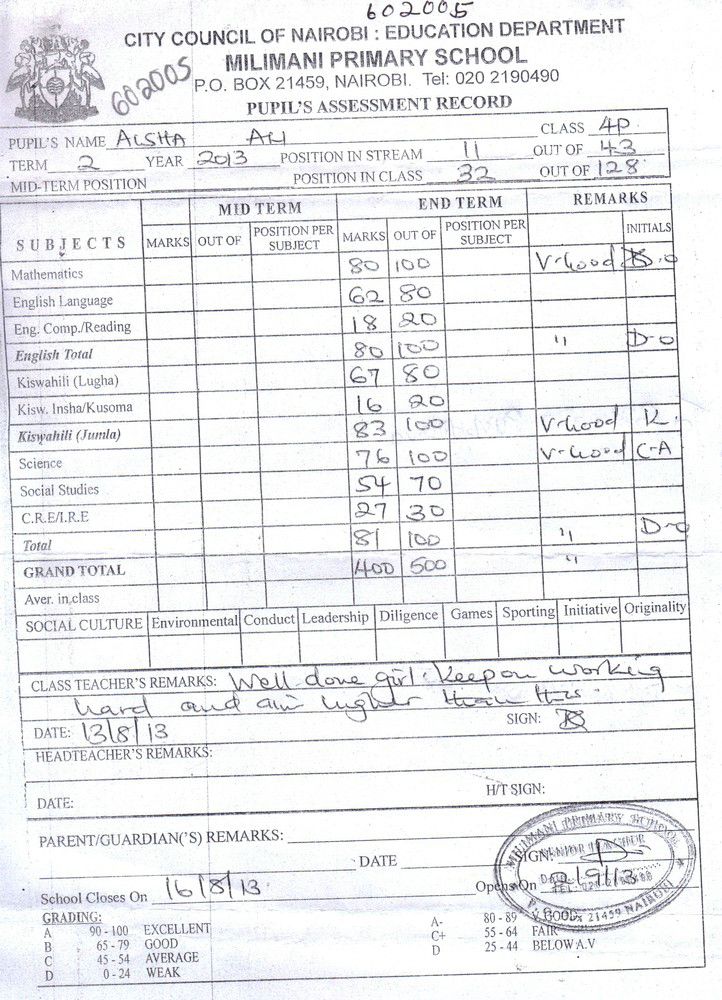 602005
CITY COUNCIL OF NAIROBI : EDUCATION DEPARTMENT
MILIMANI PRIMARY SCHOOL
602005
P.O. BOX 21459, NAIROBI. Tel: 020 2190490
PUPIL'S ASSESSMENT RECORD
PUPIL'S NAME AISHA ALI CLASS 4P
TERM 2 YEAR 2013 POSITION IN STREAM 11 OUT OF 43
MID-TERM POSITION POSITION IN CLASS 32 OUT OF 128
SUBJECTS MID TERM END TERM REMARKS
MARKS OUT OF POSITION PER SUBJECT MARKS OUT OF POSITION PER SUBJECT INITIALS
Mathematics 80 100 V-Good D.O
English Language 62 80
Eng. Comp./Reading 18 20
English Total 80 100 " D-O
Kiswahili (Lugha) 67 80
Kisw. Insha/Kusoma 16 20
Kiswahili (Jumla) 83 100 V-Good K.
Science 76 100 V-Good C-A
Social Studies 54 70
C.R.E/I.R.E 27 30
Total 81 100 " D-O
GRAND TOTAL 400 500 "
Aver. in class
SOCIAL CULTURE Environmental Conduct Leadership Diligence Games Sporting Initiative Originality
CLASS TEACHER'S REMARKS: Well done girl. Keep on working
hard and aim higher than this.
DATE: 13/8/13 SIGN:
HEADTEACHER'S REMARKS:
DATE: H/T SIGN:
PARENT/GUARDIAN('S) REMARKS:
DATE SIGN:
School Closes On 16/8/13 Opens On 2/9/13
MILIMANI PRIMARY SCHOOL
SENIOR TEACHER
P. O. Box 21459 NAIROBI
GRADING:
A 90 - 100 EXCELLENT A- 80 - 89 V. GOOD
B 65 - 79 GOOD C+ 55 - 64 FAIR
C 45 - 54 AVERAGE D 25 - 44 BELOW A.V
D 0 - 24 WEAK